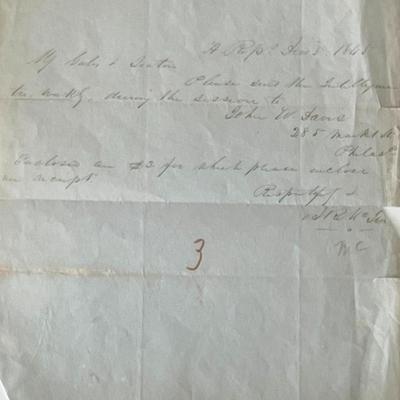 H Reps Jan 5 1848
Gales & Seaton
Please send the Intelligencer
tri weekly, during the session to
John W. Faris
285 Market St
Philada
Enclosed are $3 for which please enclose
receipt
Respectfully &
M C
3